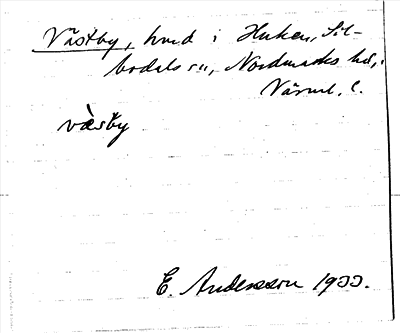 Västby, hmd i Huken, Sil-
bodals sn, Nordmarks hd,
Värml. l.
väsby
E. Andersson 1933.